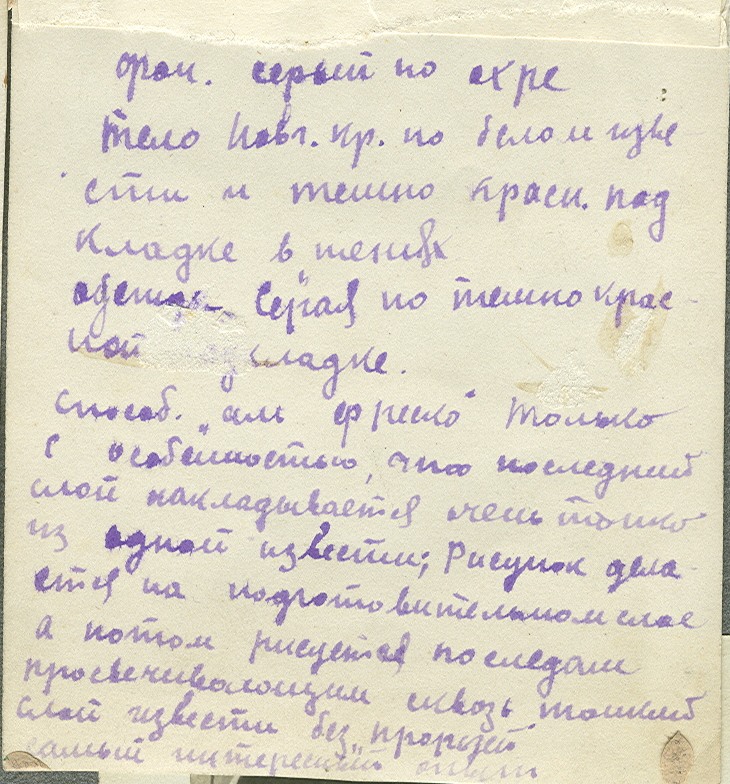 фон. серый по охре
тело новг. кр. по белом изве
сти и темно красн. под
кладке в тенях
одежда серая по темно крас-
ной кладке.
способ. "аль фреско" только
с особенностью, что последний
слой накладывается очень тонко
из одной извести; Рисунок дела-
ется на подготовительном слое
а потом рисуется по следам
просвечивающим сквозь тонкий
слой извести без "прорезей"
самый интересный